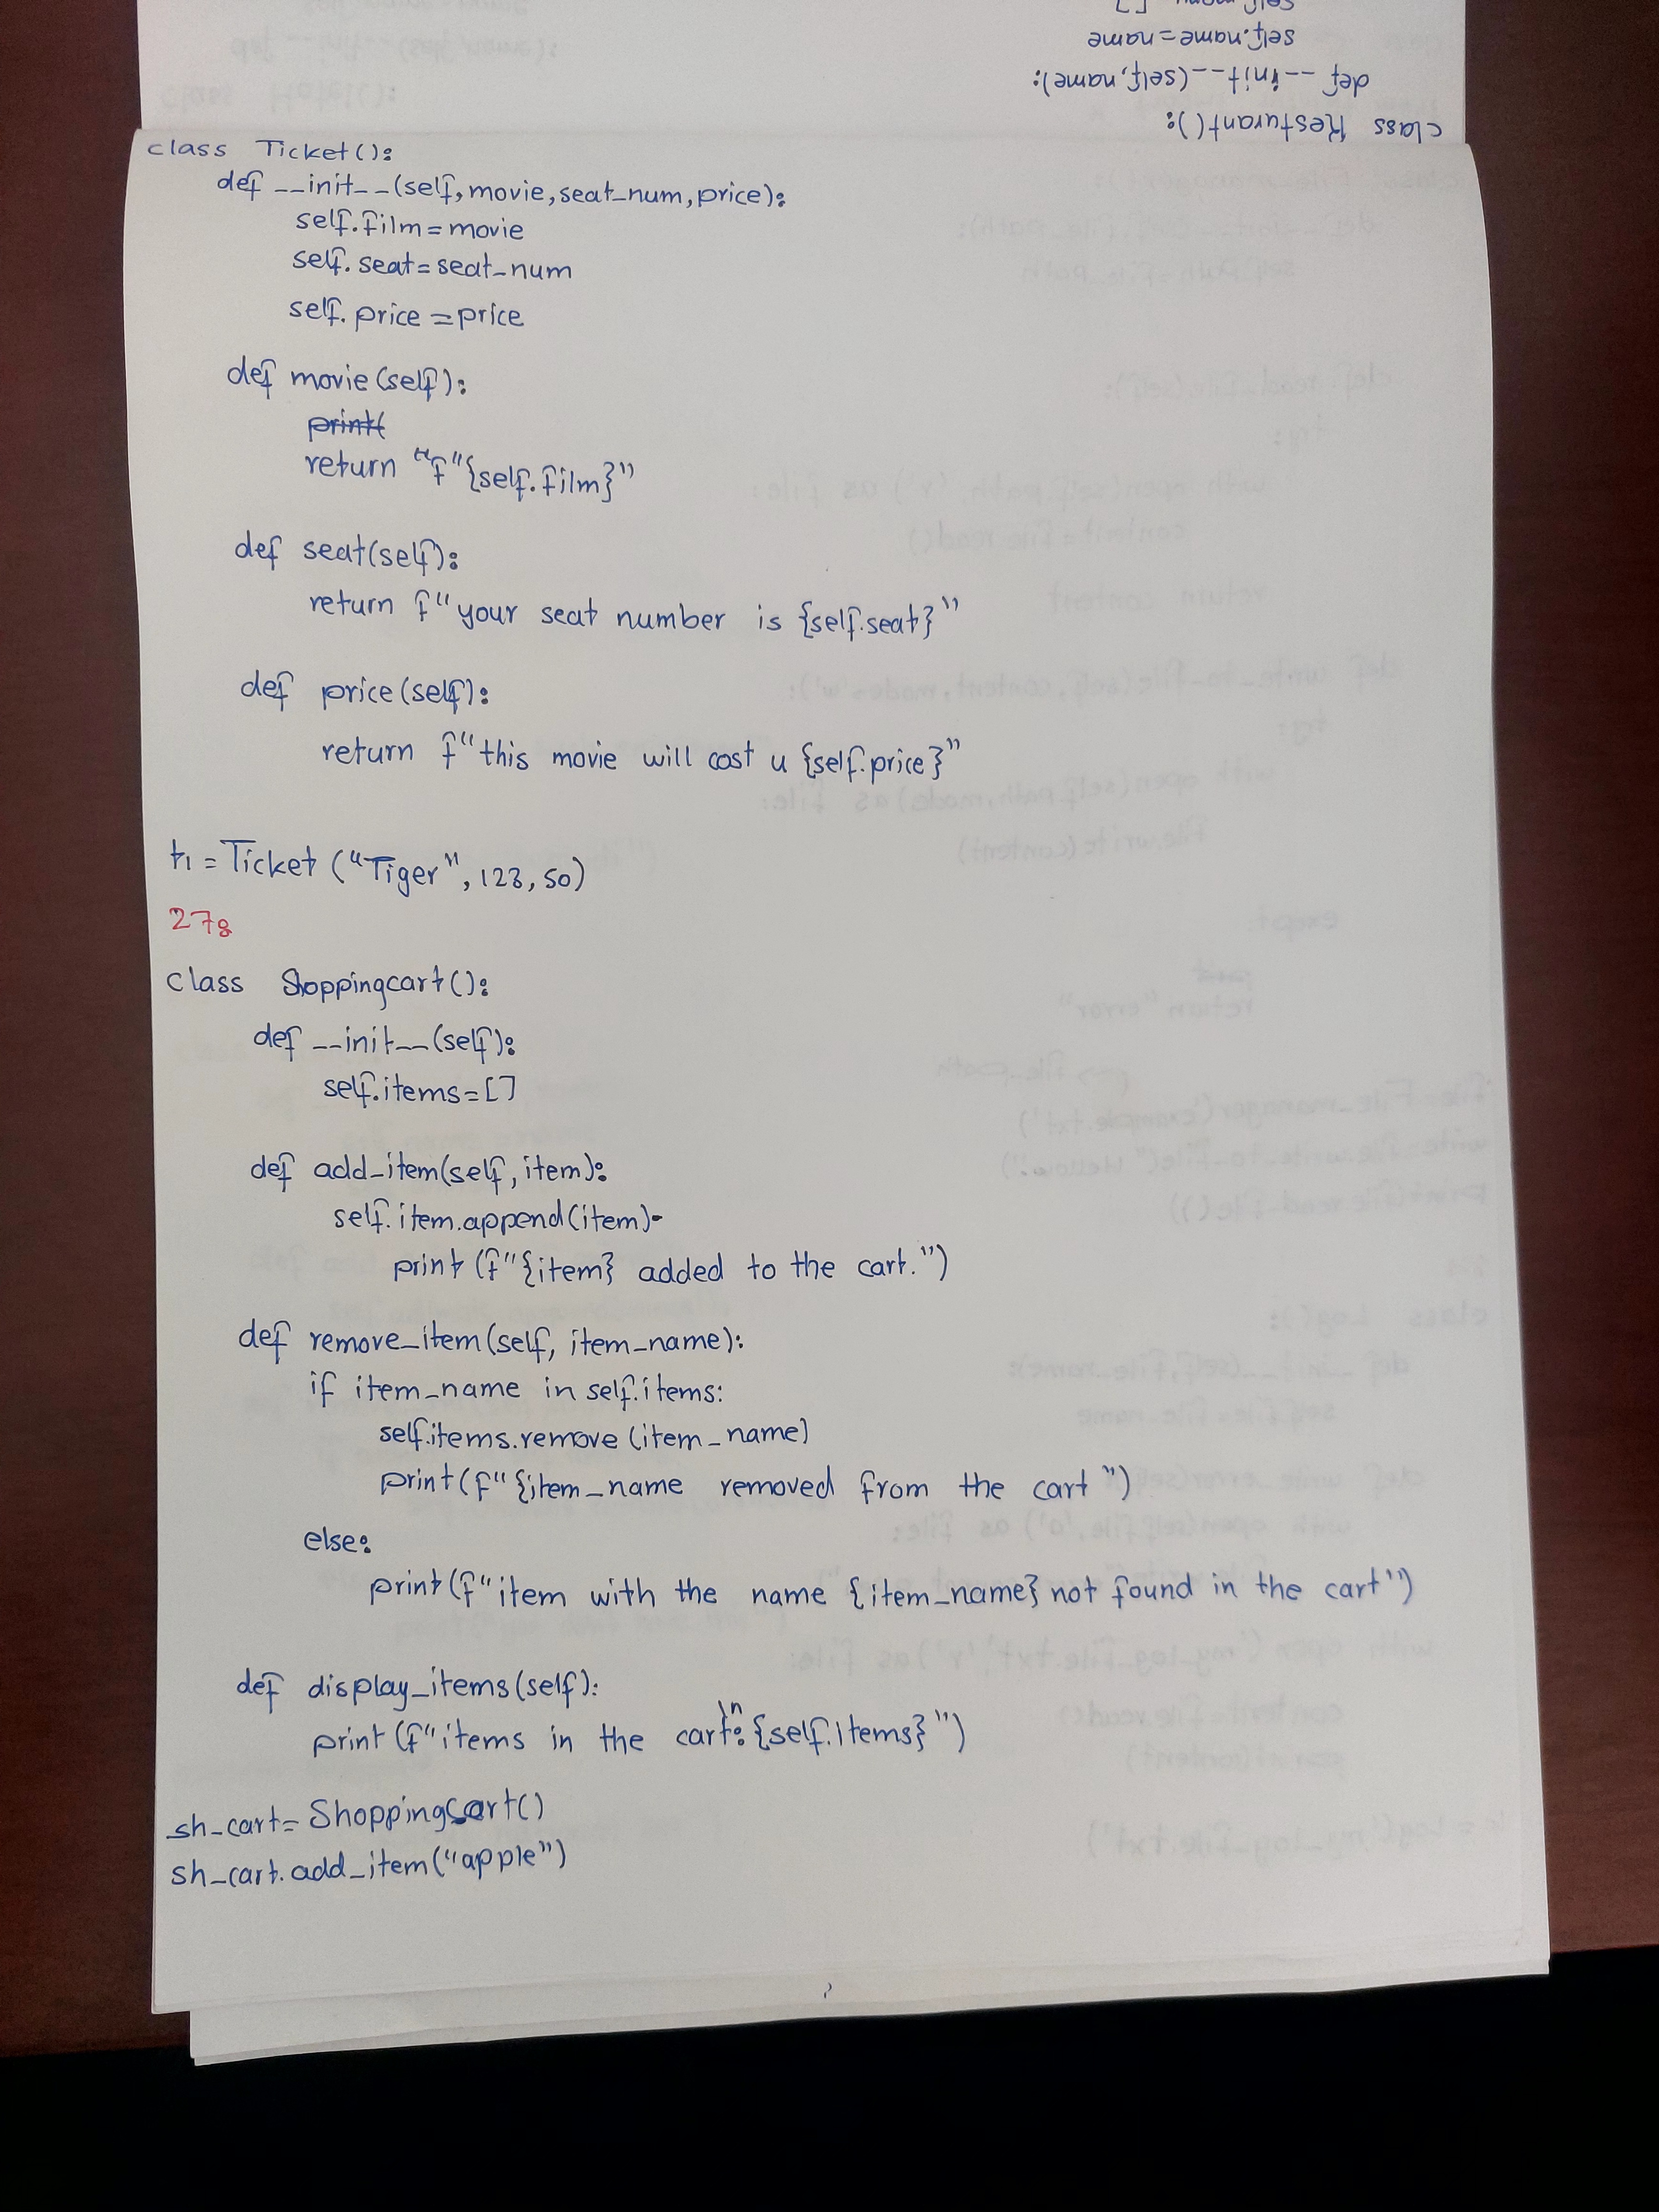 self.name=name
def __init__(self,name):
class Resturant():
class Ticket():
def __init__(self,movie,seat_num,price):
self.film=movie
self.seat=seat_num
self.price=price
def movie(self):
print(
return "f"{self.film}"
def seat(self):
return f"your seat number is {self.seat}"
def price(self):
return f"this movie will cost u {self.price}"
t1=Ticket("Tiger",123,50)
27:
class Shoppingcart():
def __init__(self):
self.items=[]
def add_item(self,item):
self.item.append(item)
print(f"{item} added to the cart.")
def remove_item(self, item_name):
if item_name in self.items:
self.items.remove(item_name)
print(f"{item_name removed from the cart")
else:
print(f"item with the name {item_name} not found in the cart")
def display_items(self):
print(f"items in the cart:\n{self.Items}")
sh_cart=ShoppingCart()
sh_cart.add_item("apple")